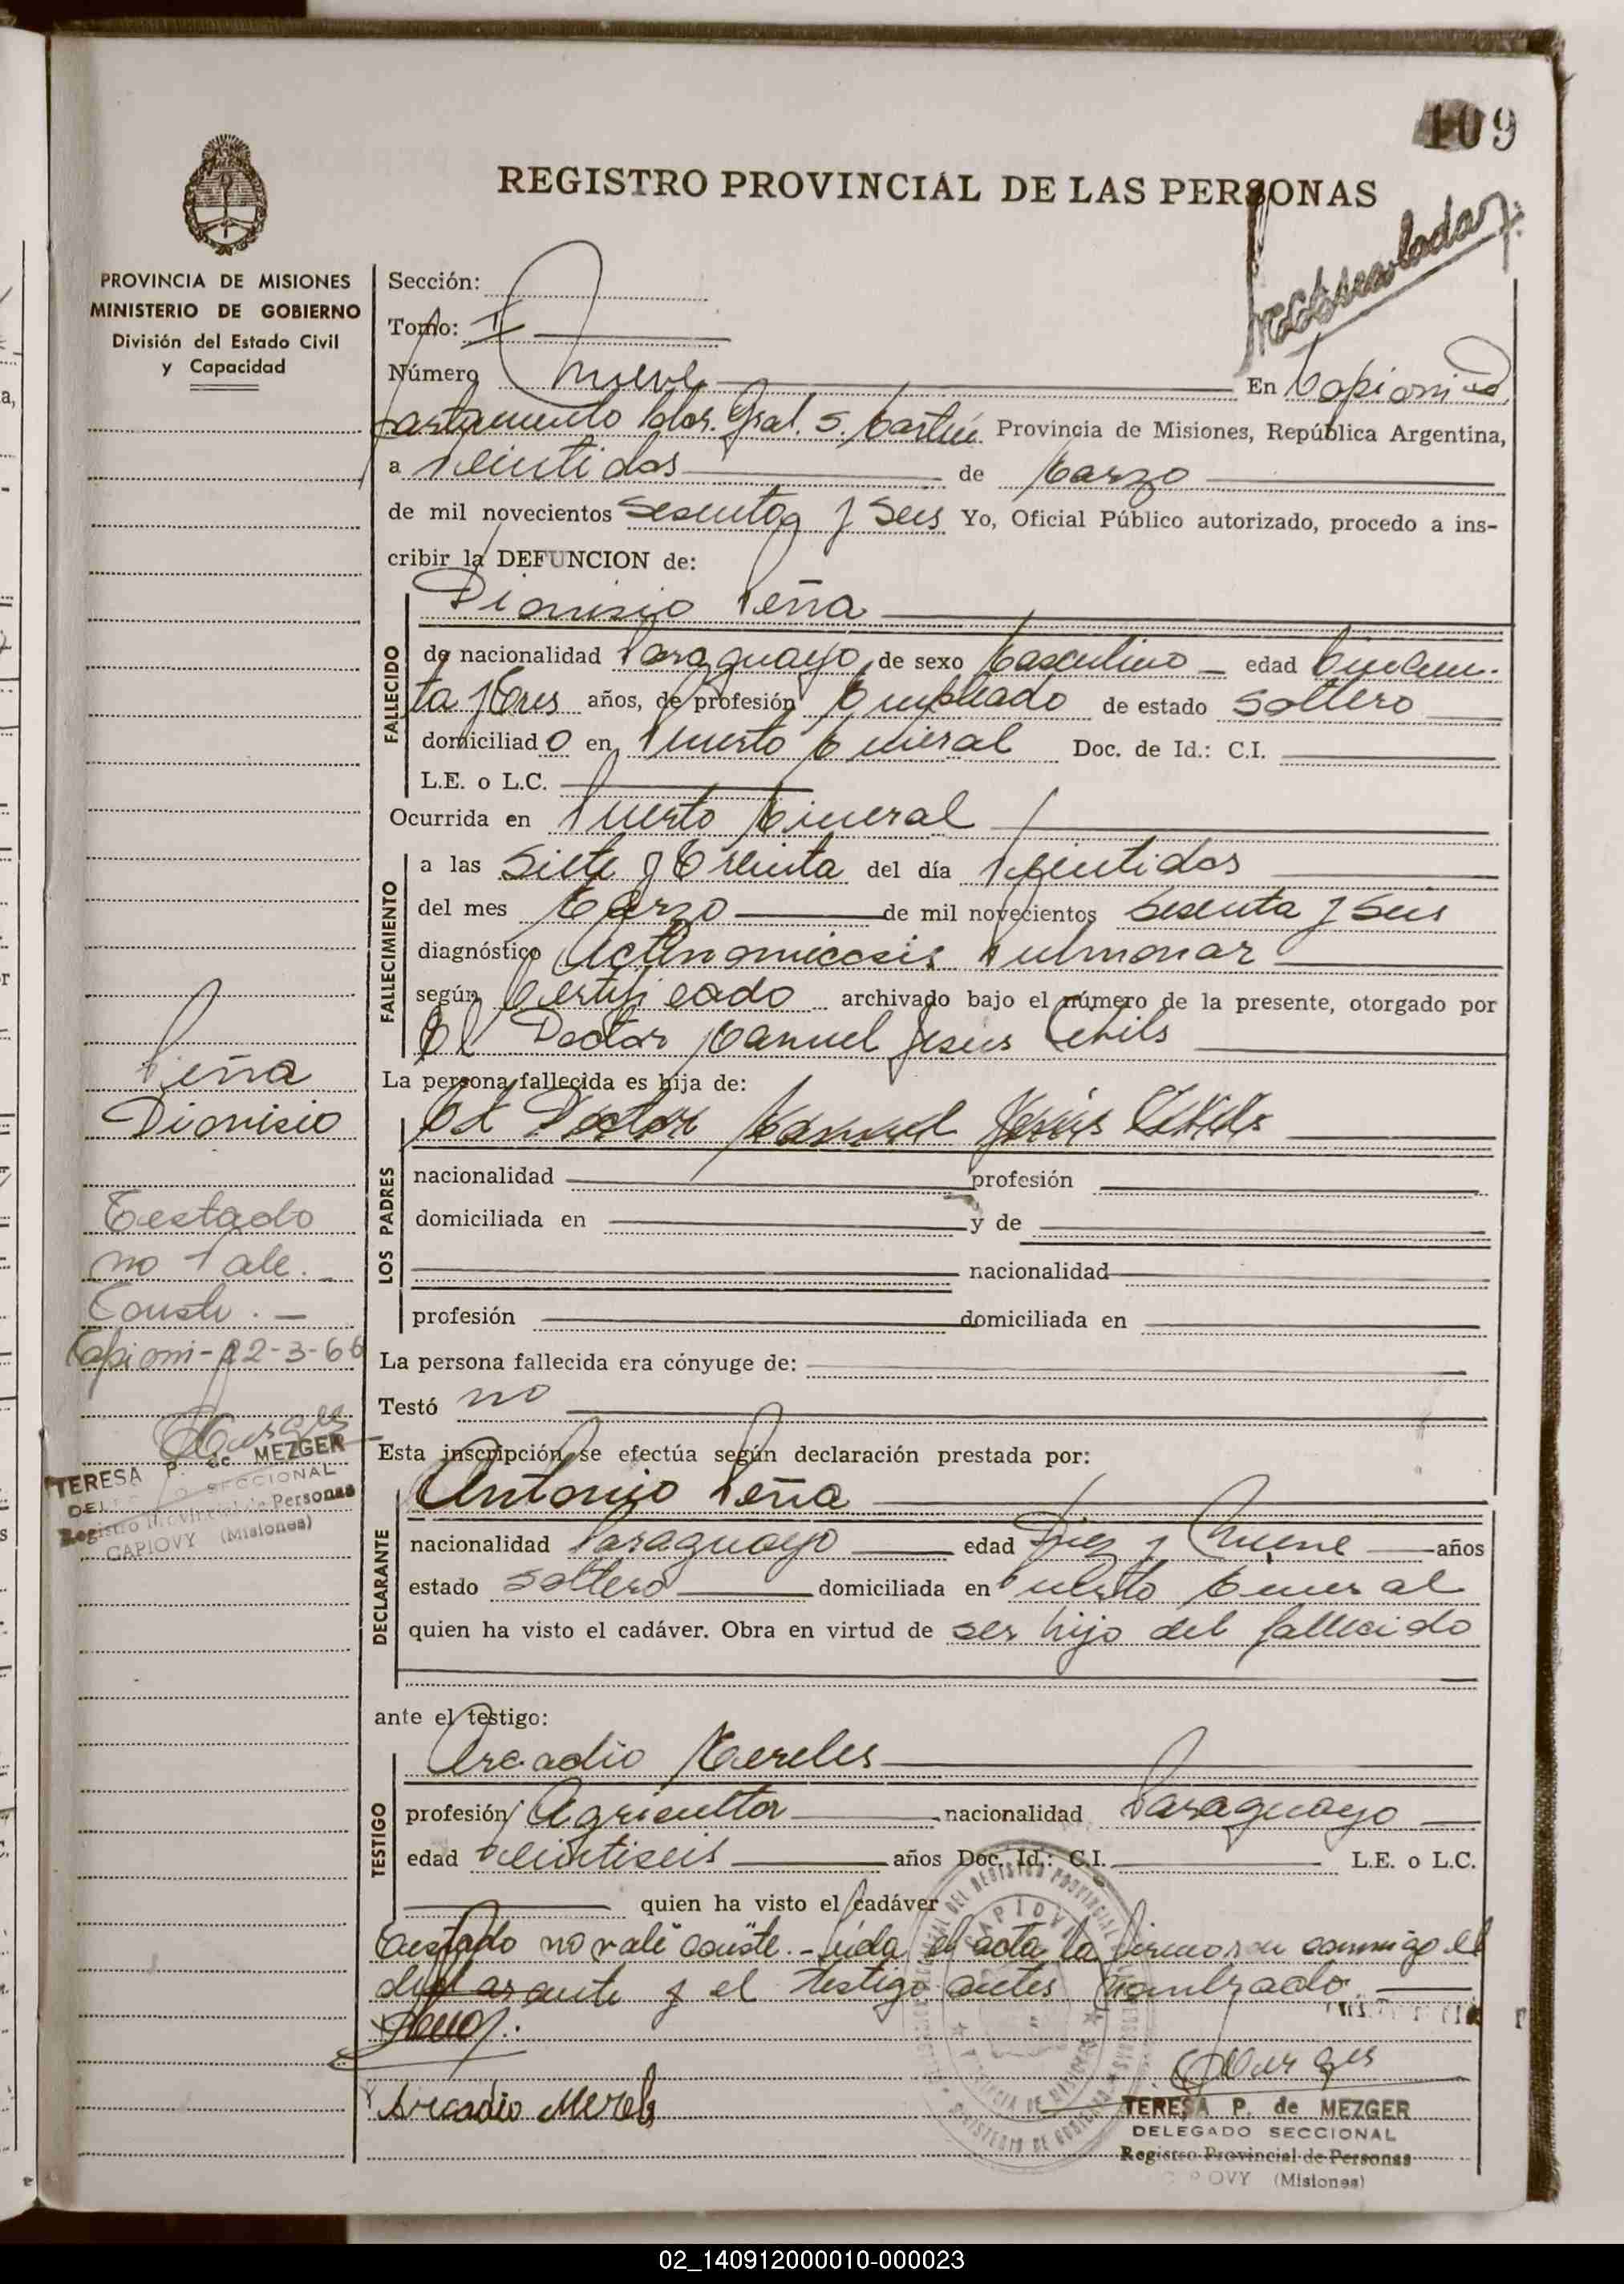 109
REGISTRO PROVINCIAL DE LAS PERSONAS
PROVINCIA DE MISIONES
MINISTERIO DE GOBIERNO
División del Estado Civil
y Capacidad
Sección:
Tomo: I
Número Nueve En Capiovi De
partamento Ldor. Gral. S. Martín Provincia de Misiones, República Argentina,
a Veintidos de Marzo
de mil novecientos Sesenta y Seis Yo, Oficial Público autorizado, procedo a ins-
cribir la DEFUNCION de:
Dionisio Peña
FALLECIDO
de nacionalidad Paraguayo de sexo Masculino edad Cincuen-
ta y tres años, de profesión Empleado de estado Soltero
domiciliado en Puerto Mineral Doc. de Id.: C.I.
L.E. o L.C.
Ocurrida en Puerto Mineral
FALLECIMIENTO
a las Siete y Treinta del día Veintidos
del mes Marzo de mil novecientos Sesenta y Seis
diagnóstico Actinomicosis Pulmonar
según Certificado archivado bajo el número de la presente, otorgado por
El Doctor Manuel Jesús
La persona fallecida es hija de:
El Doctor Manuel Jesús
LOS PADRES
nacionalidad profesión
domiciliada en y de
nacionalidad
profesión domiciliada en
La persona fallecida era cónyuge de:
Testó no
Esta inscripción se efectúa según declaración prestada por:
Antonio Peña
DECLARANTE
nacionalidad Paraguayo edad Diez y Nueve años
estado Soltero domiciliada en Puerto Mineral
quien ha visto el cadáver. Obra en virtud de ser hijo del fallecido
ante el testigo:
Arcadio Mereles
TESTIGO
profesión Agricultor nacionalidad Paraguayo
edad Veintiseis años Doc. Id.: C.I. L.E. o L.C.
quien ha visto el cadáver
Testado no vale conste.- Leida el acta la firmaron conmigo el
declarante y el testigo antes nombrado.
Arcadio Mereles
TERESA P. de MEZGER
DELEGADO SECCIONAL
Registro Provincial de Personas
CAPIOVY (Misiones)
Peña
Dionisio
Testado
no vale.
Conste.-
Capiovi-22-3-66
TERESA P. de MEZGER
DELEGADO SECCIONAL
Registro Provincial de Personas
CAPIOVY (Misiones)
02_140912000010-000023